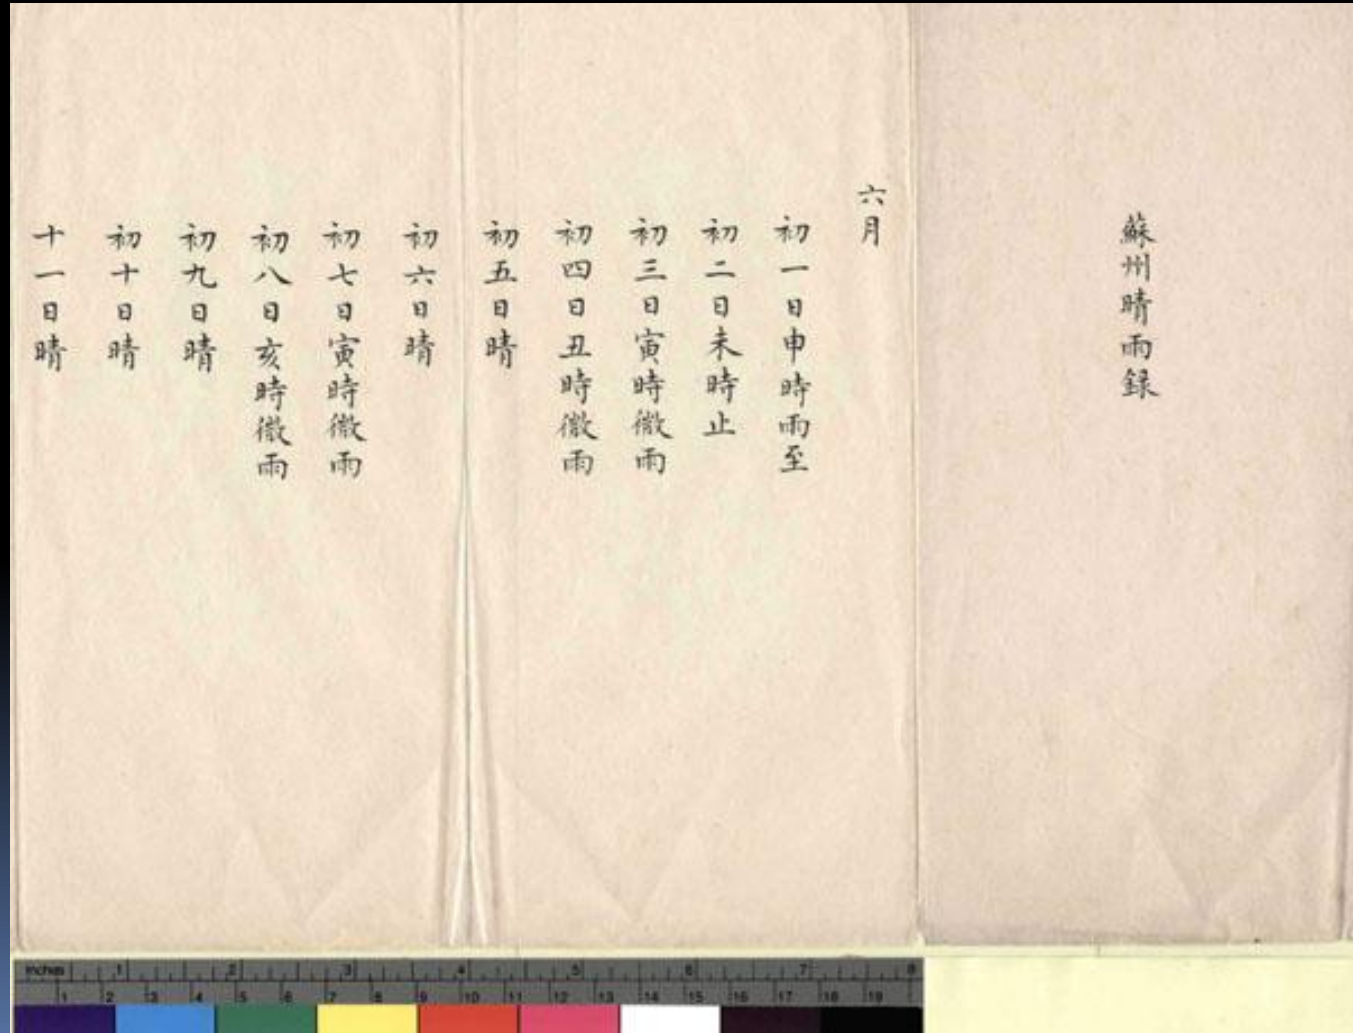 蘇州晴雨録
六月
初一日申時雨至
初二日未時止
初三日寅時微雨
初四日丑時微雨
初五日晴
初六日晴
初七日寅時微雨
初八日亥時微雨
初九日晴
初十日晴
十一日晴
inches 1 2 3 4 5 6 7 8
1 2 3 4 5 6 7 8 9 10 11 12 13 14 15 16 17 18 19